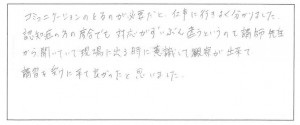 コミュニケーションのとるのが必要だと、仕事に行きよく分かりました。
認知症の方の度合でも対応がずいぶん違うというのを講師先生
から聞いていて現場に出る時に意識して観察が出来て
講習を受けに来て良かったと思いました。